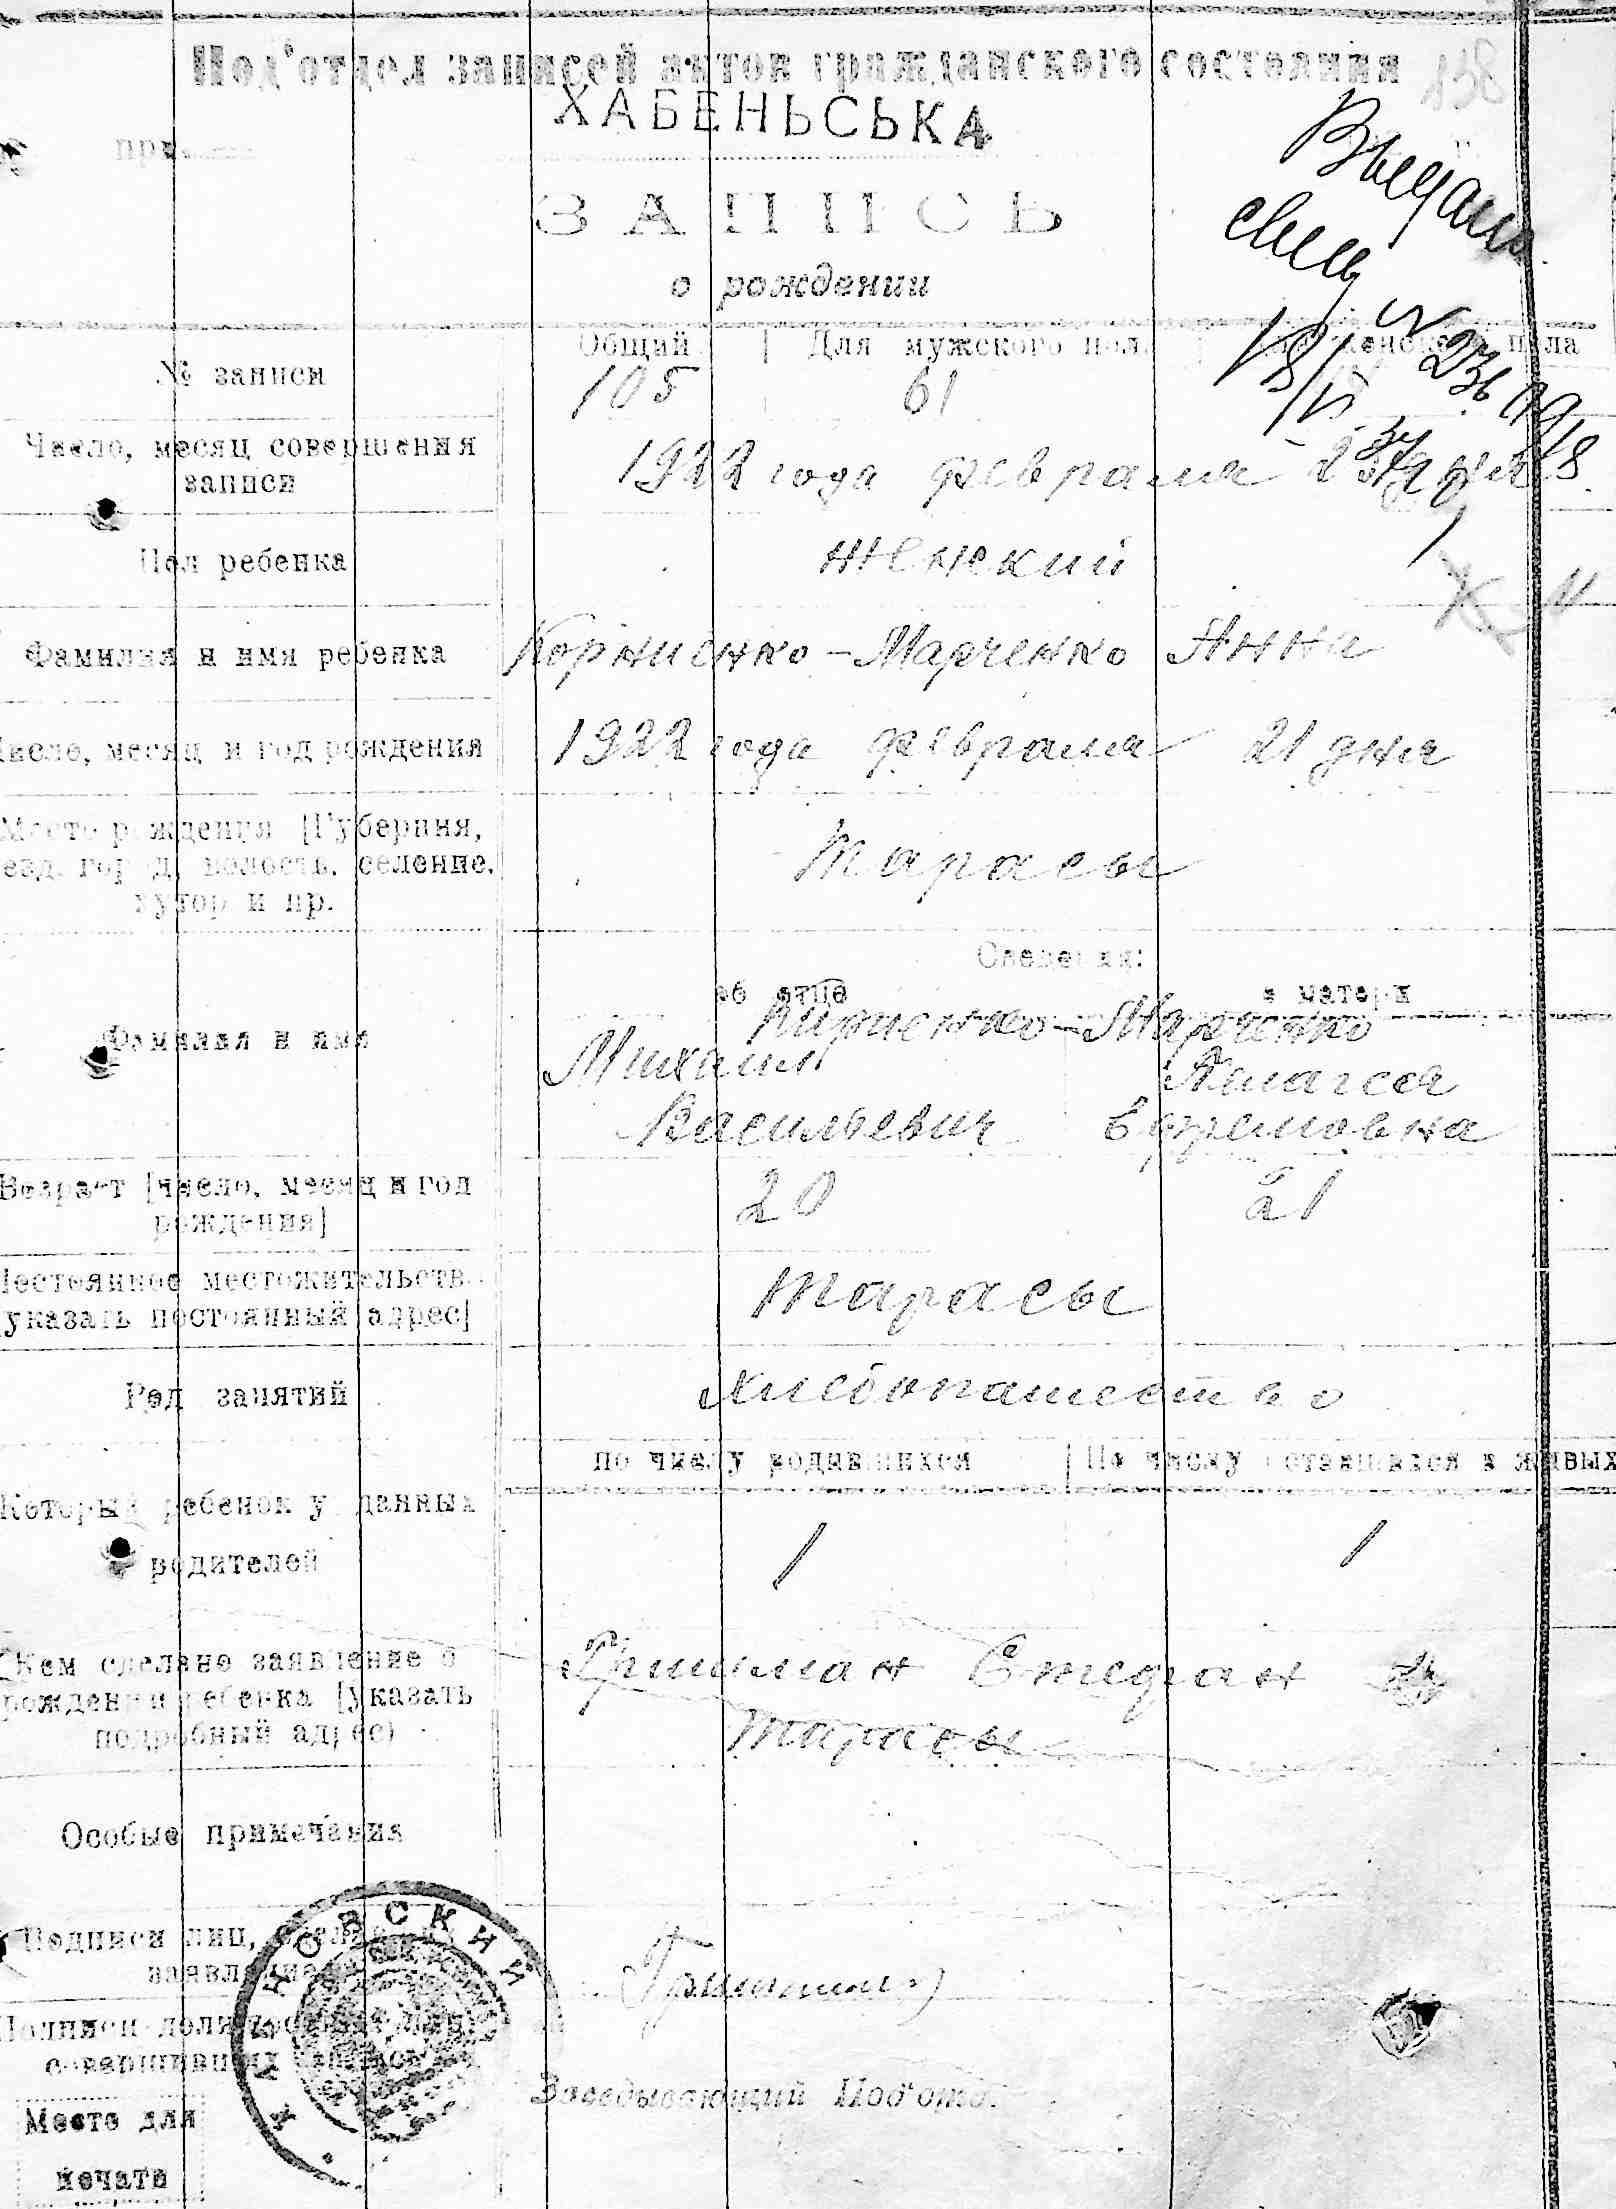 Под'отдел записей актов гражданского состояния
138
ХАБЕНЬСЬКА
при
ЗАПИСЬ
о рождении
Выдано
свид N
18/VI
№ записи
Общий | Для мужского пола | женского пола
105 61
Число, месяц совершения
записи
1922 года февраля
Пол ребенка
женский
Фамилия и имя ребенка
Корниенко-Марченко Анна
Число, месяц и год рождения
1922 года февраля 21 дня
Место рождения [Губерния,
уезд, город, волость, селение,
хутор и пр.
Тарасы
Сведения:
об отце о матери
Фамилия и имя
Корниенко-Марченко
Михаил Пелагея
Васильевич Ефремовна
Возраст [число, месяц и год
рождения]
20 21
Постоянное местожительство
[указать постоянный адрес]
Тарасы
Род занятий
хлебопашество
по числу родившихся | По числу оставшихся в живых
Который ребенок у данных
родителей
1 1
Кем сделано заявление о
рождении ребенка [указать
подробный адрес)
Гришман Стефан
Тарасы
Особые примечания
Подписи лиц, сделавших
заявление
Подписи должностных лиц,
совершивших запись
Заведывающий Под'отд.
Место для
печати